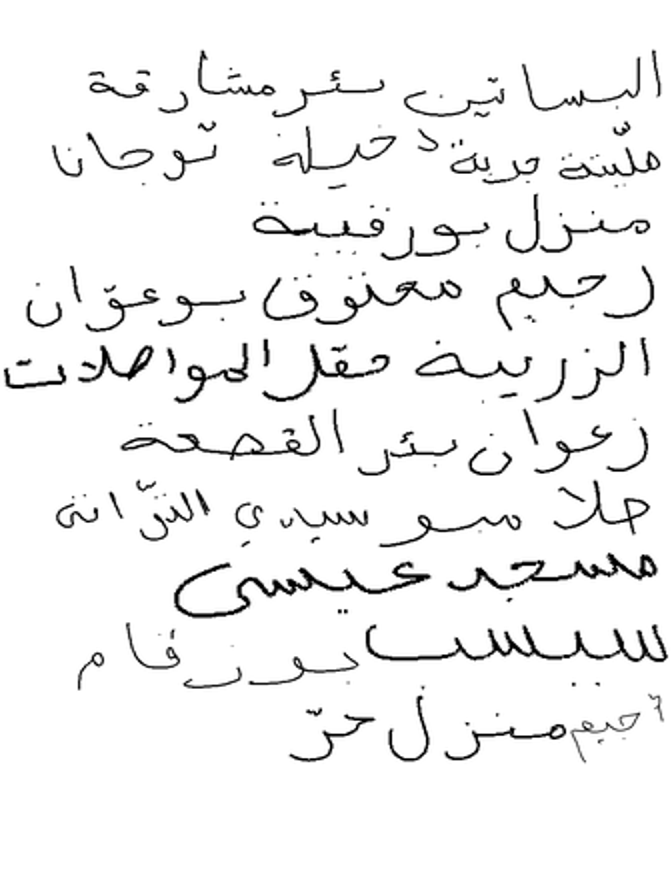 البساتين بئر مشارقة
ملّيتة جربة دخيلة توجان
منزل بورقيبة
رجيم معتوق بوعوّان
الزريبة حقل المواصلات
زعوان بئر القصعة
سيدي
مسجد عيسى
سبيبت بوزقام
منزل حرّ